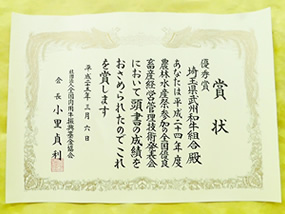 賞状
優秀賞
埼玉県武州和牛組合殿
あなたは平成二十四年度
農林水産祭参加全国優良
畜産経営管理技術発表会
において頭書の成績を
おさめられたのでこれ
を賞します
平成二十五年三月六日
社団法人全国肉用牛振興基金協会
会長 小里貞利